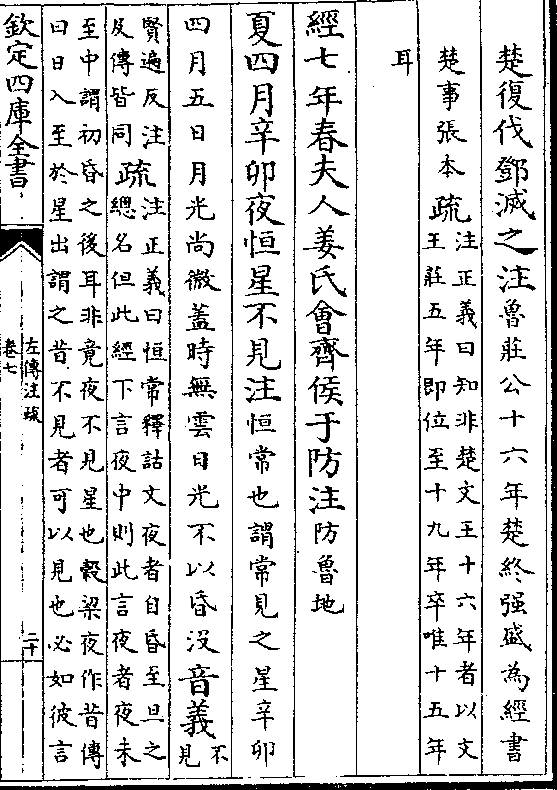 楚復伐鄧滅之注魯莊公十六年楚終强盛為經書
楚事張本疏注正義曰知非楚文王十六年者以文
王莊五年即位至十九年卒唯十五年
耳
經七年春夫人姜氏會齊侯于防注防魯地
夏四月辛卯夜恒星不見注恒常也謂常見之星辛卯
四月五日月光尚微蓋時無雲日光不以昏没音義不
見
賢遍反注
及傳皆同疏注正義曰恒常釋詁文夜者自昏至旦之
總名但此經下言夜中則此言夜者夜未
至中謂初昏之後耳非竟夜不見星也穀梁夜作昔傳
曰日入至於星出謂之昔不見者可以見也必如彼言
欽定四庫全書
左傳注疏
卷七
二十